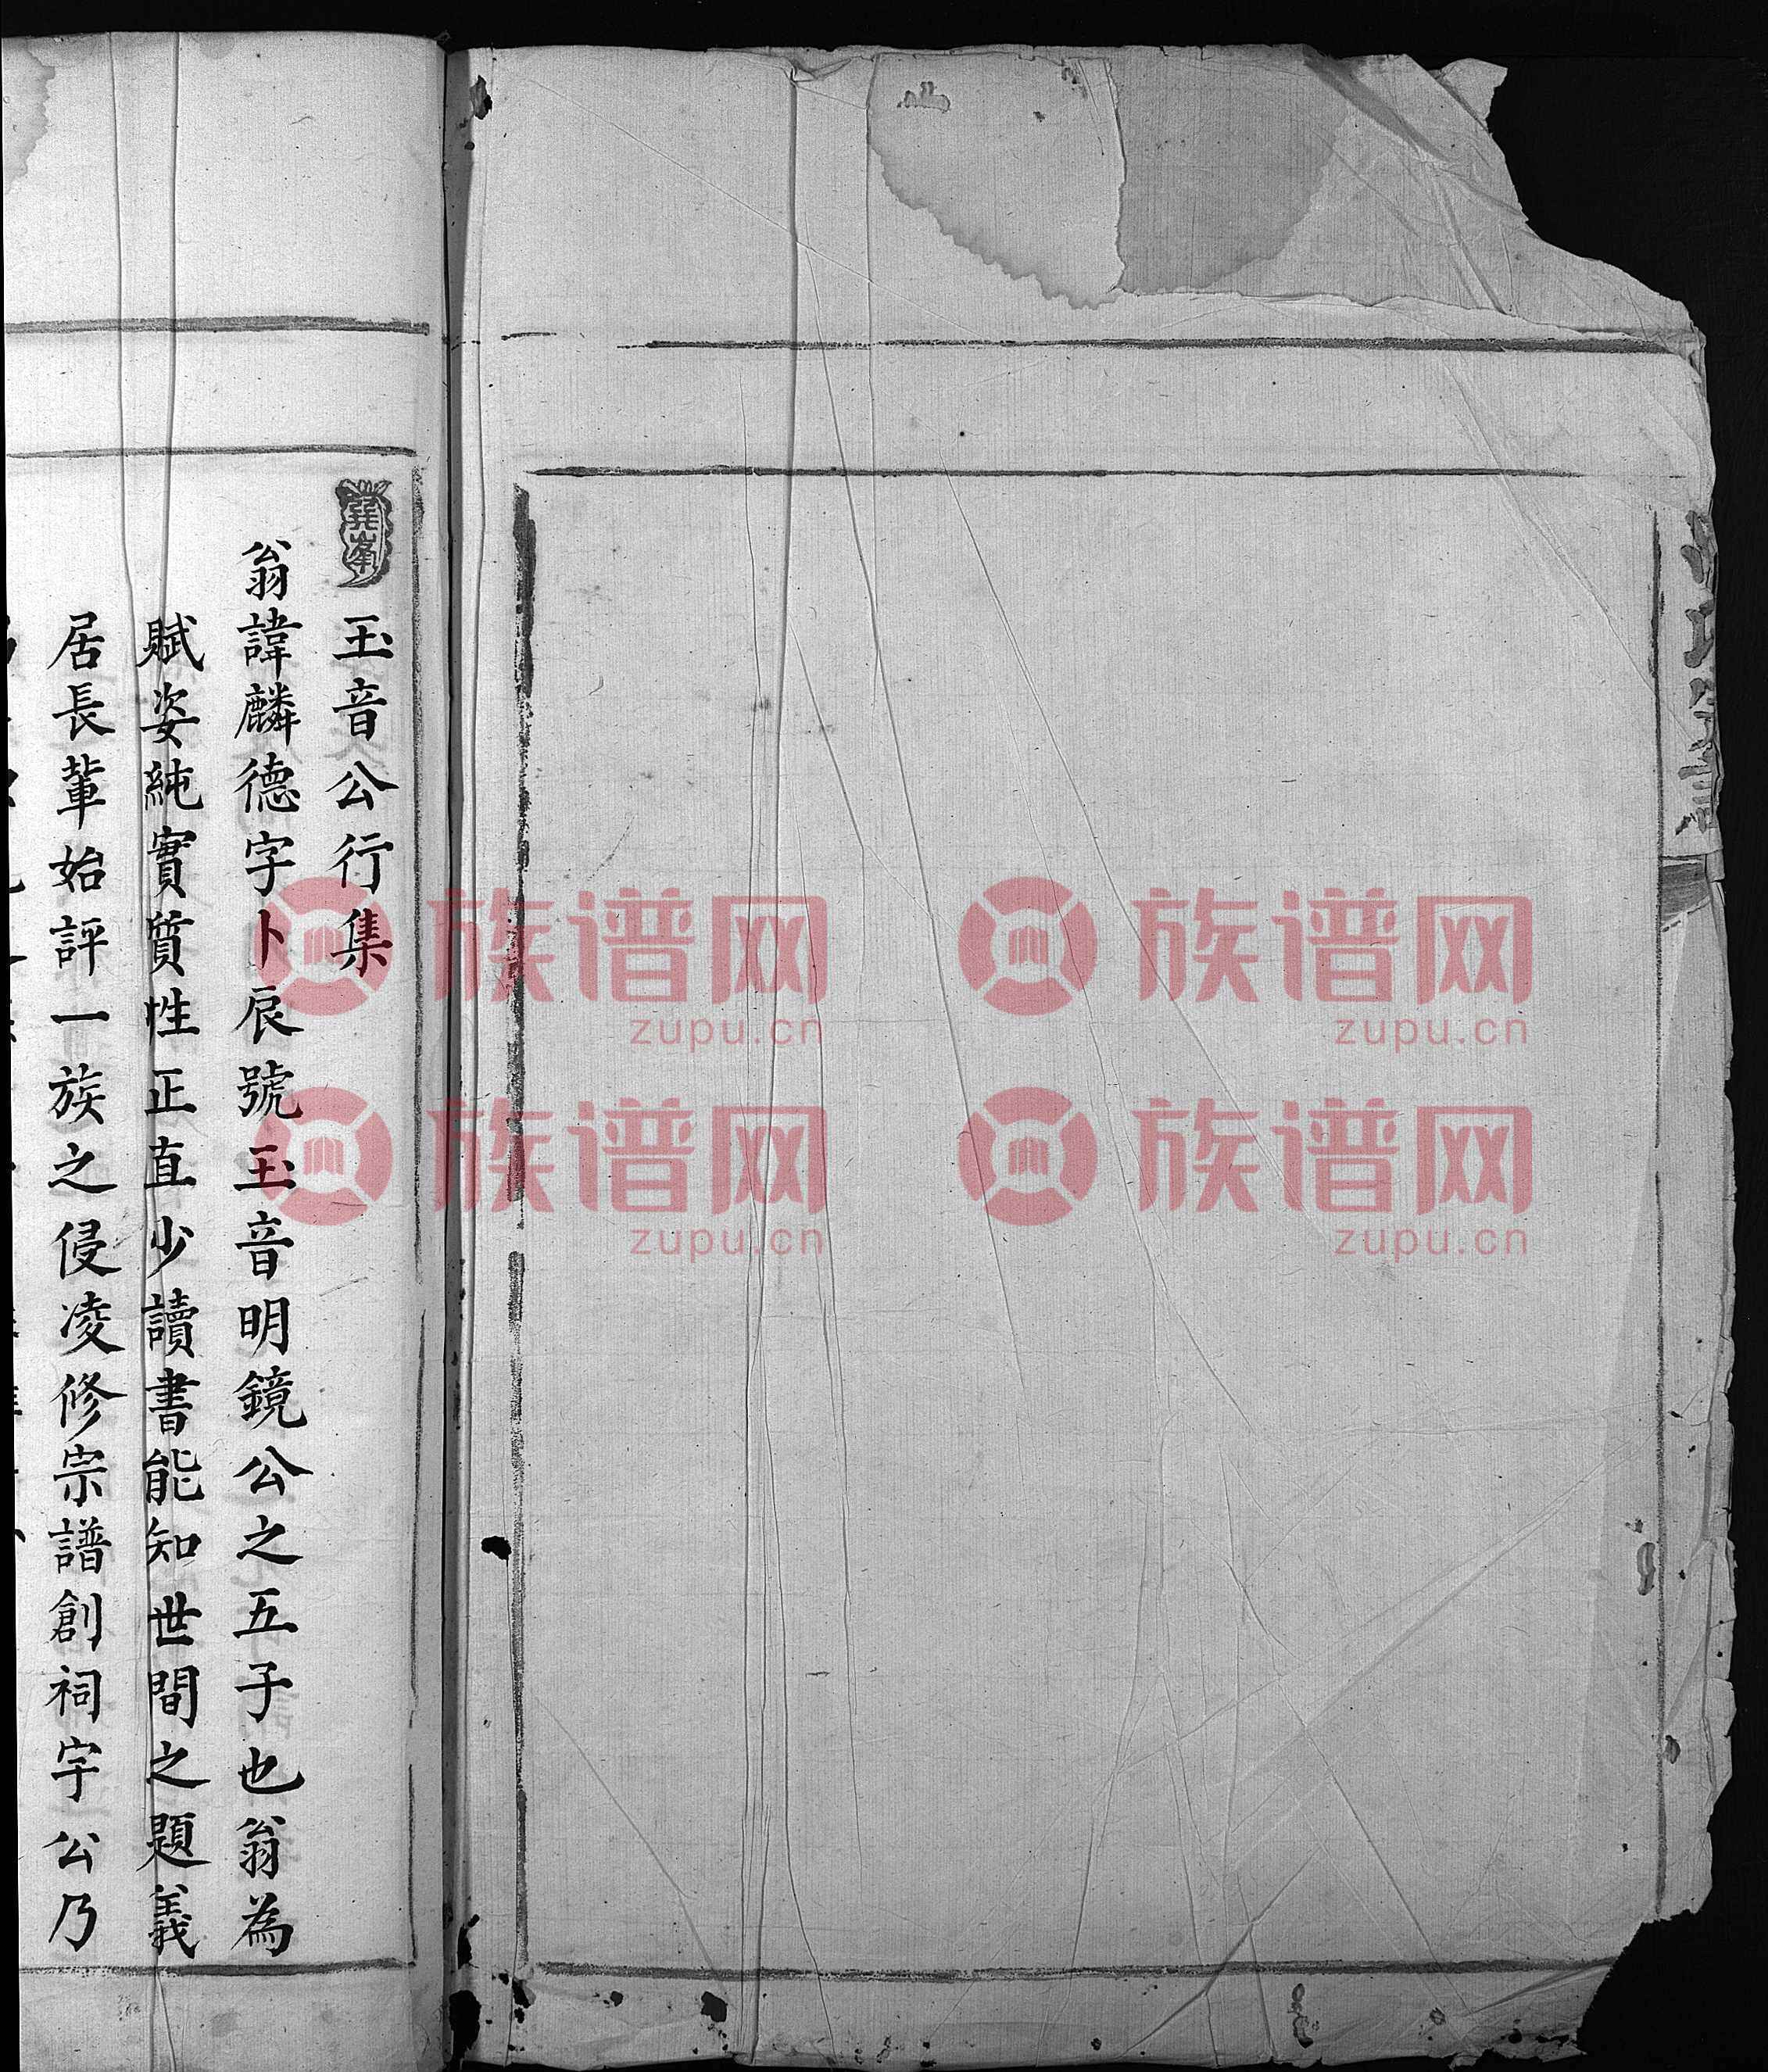 玉音公行集
翁諱麟德字卜辰號玉音明鏡公之五子也翁為
賦姿純實質性正直少讀書能知世間之題義
居長輩始評一族之侵凌修宗譜創祠宇公乃
族谱网
zupu.cn
族谱网
zupu.cn
族谱网
zupu.cn
族谱网
zupu.cn